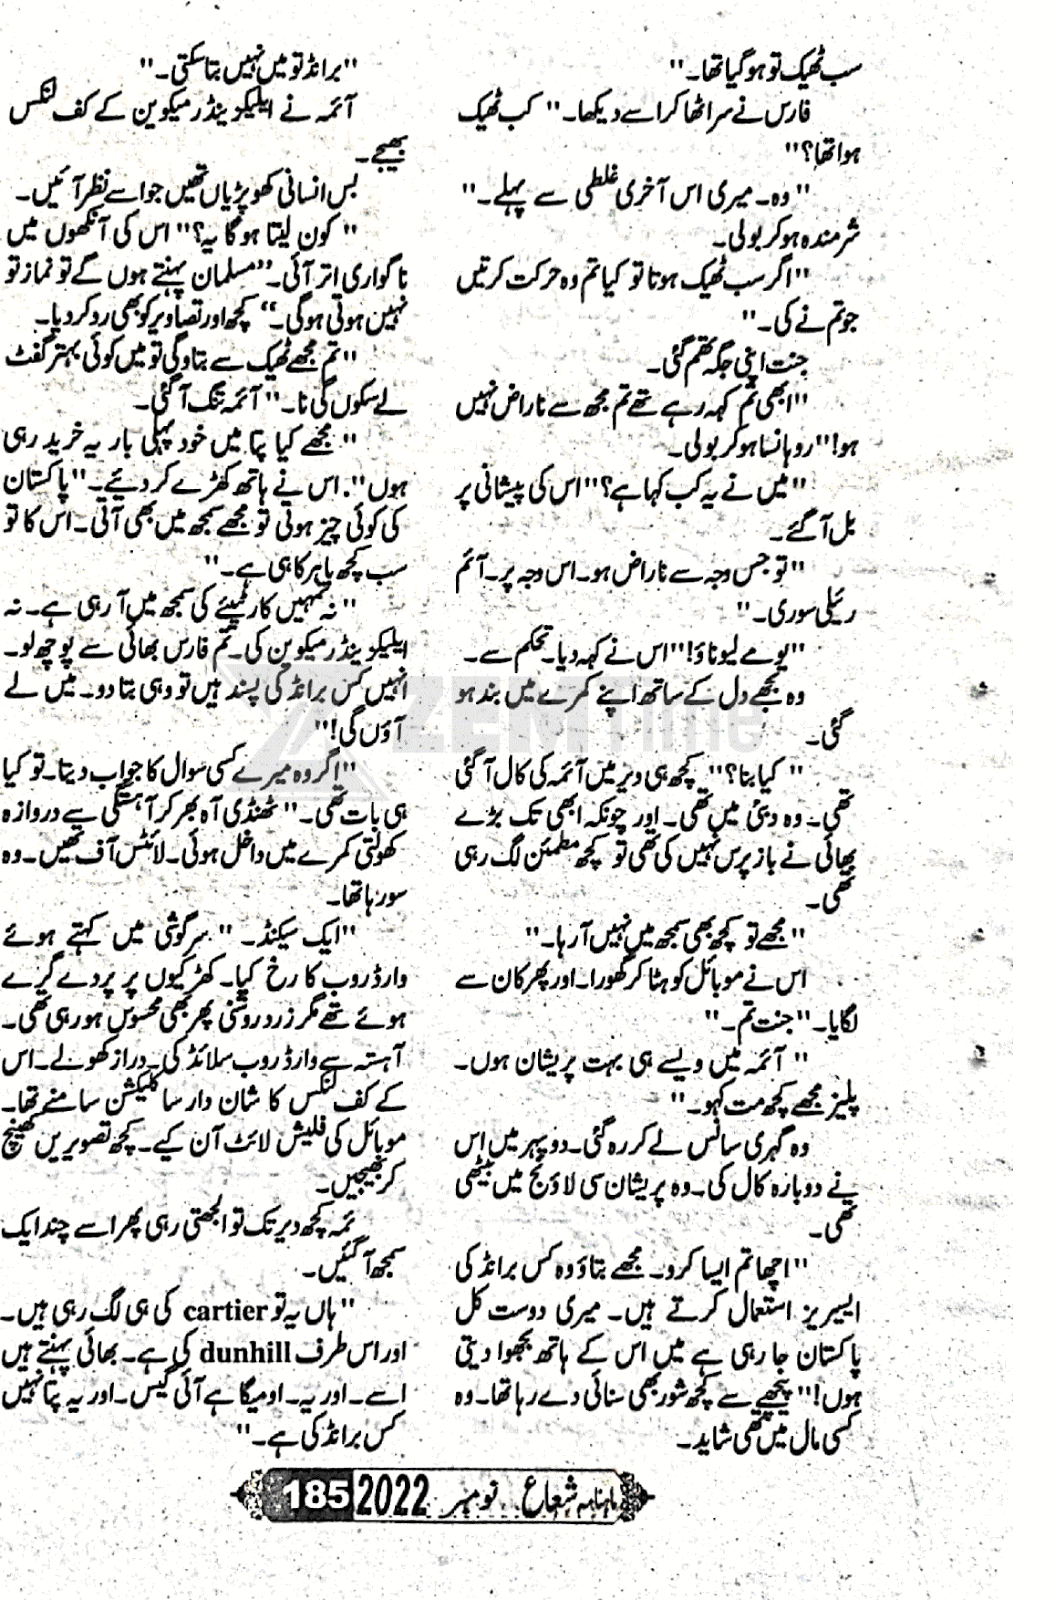 سب ٹھیک تو ہو گیا تھا۔"
فارس نے سر اٹھا کر اسے دیکھا۔ "کب ٹھیک
ہوا تھا؟"
"وہ۔ میری اس آخری غلطی سے پہلے۔"
شرمندہ ہو کر بولی۔
"اگر سب ٹھیک ہوتا تو کیا تم وہ حرکت کرتیں
جو تم نے کی۔"
جنت اپنی جگہ تھم گئی۔
"ابھی تم کہہ رہے تھے تم مجھ سے ناراض نہیں
ہو!" روہانسا ہو کر بولی۔
"میں نے یہ کب کہا ہے؟" اس کی پیشانی پر
بل آ گئے۔
"تو جس وجہ سے ناراض ہو۔ اس وجہ پر۔ آئم
رئیلی سوری۔"
"یو مے لیو ناؤ!" اس نے کہہ دیا۔ تحکم سے۔
وہ بجھے دل کے ساتھ اپنے کمرے میں بند ہو
گئی۔
"کیا بنا؟" کچھ ہی دیر میں آئمہ کی کال آ گئی
تھی۔ وہ دبئی میں تھی۔ اور چونکہ ابھی تک بڑے
بھائی نے باز پرس نہیں کی تھی تو کچھ مطمئن لگ رہی
تھی۔
"مجھے تو کچھ بھی سمجھ میں نہیں آ رہا۔"
اس نے موبائل کو ہٹا کر گھورا۔ اور پھر کان سے
لگایا۔ "جنت تم۔"
"آئمہ میں ویسے ہی بہت پریشان ہوں۔
پلیز مجھے کچھ مت کہو۔"
وہ گہری سانس لے کر رہ گئی۔ دوپہر میں اس
نے دوبارہ کال کی۔ وہ پریشان سی لاؤنج میں بیٹھی
تھی۔
"اچھا تم ایسا کرو۔ مجھے بتاؤ وہ کس برانڈ کی
ایسیریز استعمال کرتے ہیں۔ میری دوست کل
پاکستان جا رہی ہے میں اس کے ہاتھ بھجوا دیتی
ہوں!" پیچھے سے کچھ شور بھی سنائی دے رہا تھا۔ وہ
کسی مال میں تھی شاید۔
"برانڈ تو میں نہیں بتا سکتی۔"
آئمہ نے ایلیکوینڈر میکوین کے کف لنکس
بھیجے۔
بس انسانی کھوپڑیاں تھیں جو اسے نظر آئیں۔
"کون لیتا ہوگا یہ؟" اس کی آنکھوں میں
ناگواری اتر آئی۔ "مسلمان پہنتے ہوں گے تو نماز تو
نہیں ہوتی ہوگی۔" کچھ اور تصاویر کو بھی رد کر دیا۔
"تم مجھے ٹھیک سے بتاؤ گی تو میں کوئی بہتر گفٹ
لے سکوں گی نا۔" آئمہ تنگ آ گئی۔
"مجھے کیا پتا میں خود پہلی بار یہ خرید رہی
ہوں"۔ اس نے ہاتھ کھڑے کر دیئے۔ "پاکستان
کی کوئی چیز ہوتی تو مجھے سمجھ میں بھی آتی۔ اس کا تو
سب کچھ باہر کا ہی ہے۔"
"نہ تمہیں کارٹیئے کی سمجھ میں آ رہی ہے۔ نہ
ایلیکوینڈر میکوین کی۔ تم فارس بھائی سے پوچھ لو۔
انہیں کس برانڈ کی پسند ہیں تو وہی بتا دو۔ میں لے
آؤں گی!"
"اگر وہ میرے کسی سوال کا جواب دیتا۔ تو کیا
ہی بات تھی۔" ٹھنڈی آہ بھر کر آہستگی سے دروازہ
کھولتی کمرے میں داخل ہوئی۔ لائٹس آف تھیں۔ وہ
سو رہا تھا۔
"ایک سیکنڈ۔" سرگوشی میں کہتے ہوئے
وارڈ روب کا رخ کیا۔ کھڑکیوں پر پردے گرے
ہوئے تھے مگر زرد روشنی پھر بھی محسوس ہو رہی تھی۔
آہستہ سے وارڈ روب سلائڈ کی۔ دراز کھولے۔ اس
کے کف لنکس کا شان دار سا کلیکشن سامنے تھا۔
موبائل کی فلیش لائٹ آن کیے۔ کچھ تصویریں کھینچ
کر بھیجیں۔
ئمہ کچھ دیر تک تو الجھتی رہی پھر اسے چند ایک
سمجھ آ گئیں۔
"ہاں یہ تو cartier کی ہی لگ رہی ہیں۔
اور اس طرف dunhill کی ہے۔ بھائی پہنتے ہیں
اسے۔ اور یہ۔ اومیگا ہے آئی گیس۔ اور یہ پتا نہیں
کس برانڈ کی ہے۔"
ZEMTime
ماہنامہ شعاع نومبر 2022 185